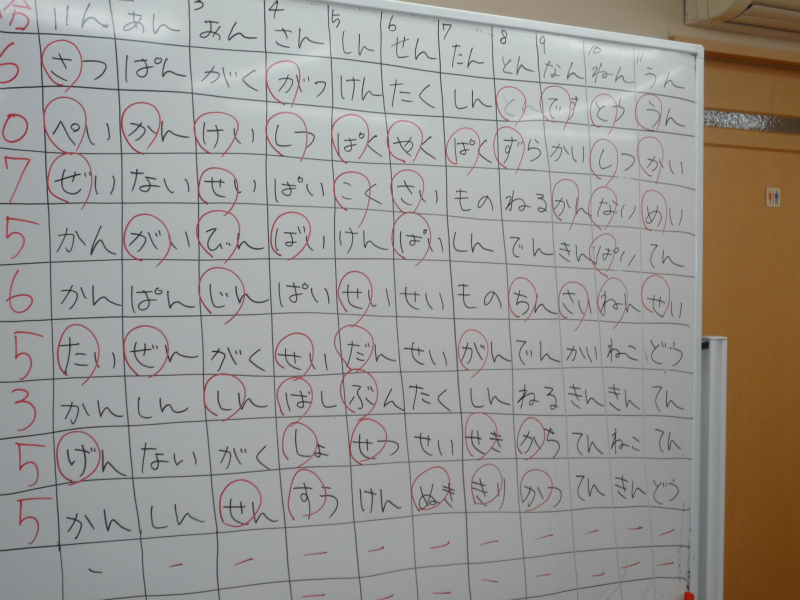 分 いん あん おん さん しん せん たん とん なん ねん うん
3 4 5 6 7 8 9 10 11
6 さつ ぱん がく がっ けん たく しん と です とう うん
0 ぺい かん けい しつ ぱく やく ぱく ずら かい しつ かい
7 ぜい ない せい ぱい こく さい もの ねる かん ない めい
5 かん がい びん ばい けん ぱい しん でん きん ぱい てん
6 かん ぱん じん ぱい せい せい もの ちん さい ねん せい
5 たい ぜん がく せい だん せい がん でん かい ねこ どう
3 かん しん しん ばし ぶん たく しん ねる きん きん てん
5 げん ない がく しょ せつ せい せき かち てん ねこ てん
5 かん しん せん すう けん ぬき きり かつ てん きん どう